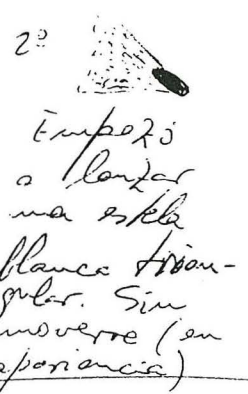 2º
Empezó
a lanzar
una estela
blanca trian-
gular. Sin
moverse (en
apariencia)